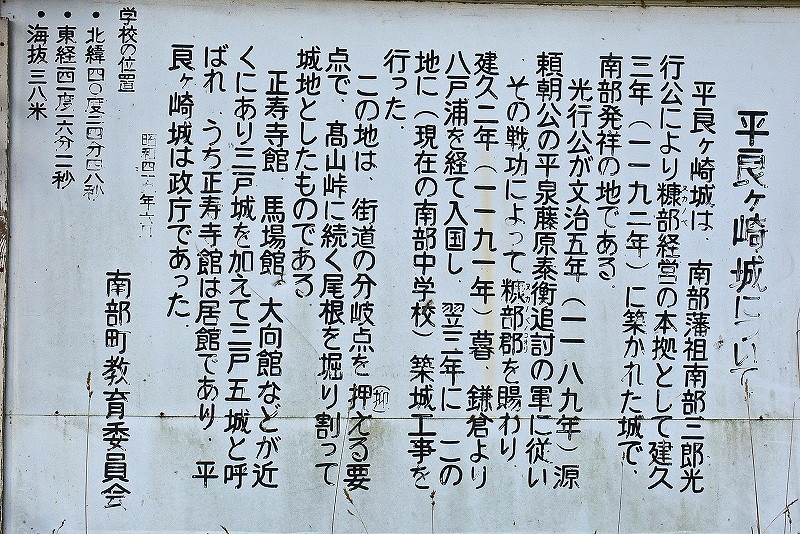 平良ヶ崎城について
平良ヶ崎城は、南部藩祖南部三郎光
行公により糠部経営の本拠として建久
三年（一一九二年）に築かれた城で、
南部発祥の地である
光行公が文治五年（一一八九年）源
頼朝公の平泉藤原泰衡追討の軍に従い
その戦功によって糠部郡を賜わり
建久二年（一一九一年）暮、鎌倉より
八戸浦を経て入国し、翌三年に、この
地に（現在の南部中学校）築城工事を
行った.
この地は、街道の分岐点を押える要
点で、髙山峠に続く尾根を堀り割って
城地としたものである
正寿寺館、馬場館、大向館などが近
くにあり三戸城を加えて三戸五城と呼
ばれ、うち正寿寺館は居館であり、平
良ヶ崎城は政庁であった.
南部町教育委員会
学校の位置
・北緯四〇度二四分四八秒
・東経一四一度一六分一一秒
・海抜三八米